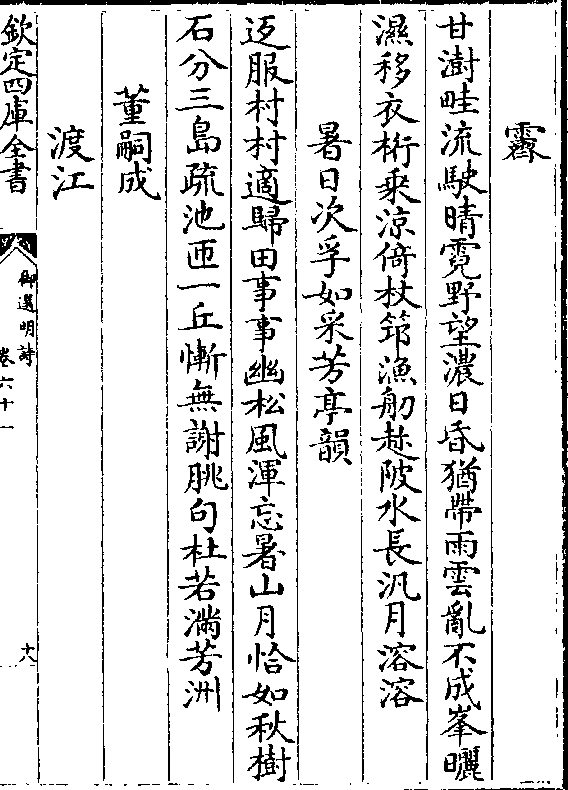 霽
甘澍畦流駛晴霓野望濃日昏猶帶雨雲亂不成峯曬
濕移衣桁乗涼倚杖笻漁舠趁陂水長汎月溶溶
暑日次孚如采芳亭韻
迓服村村適歸田事事幽松風渾忘暑山月恰如秋樹
石分三島疏池匝一丘慚無謝朓句杜若滿芳洲
董嗣成
渡江
欽定四庫全書
御選明詩
卷六十一
十八